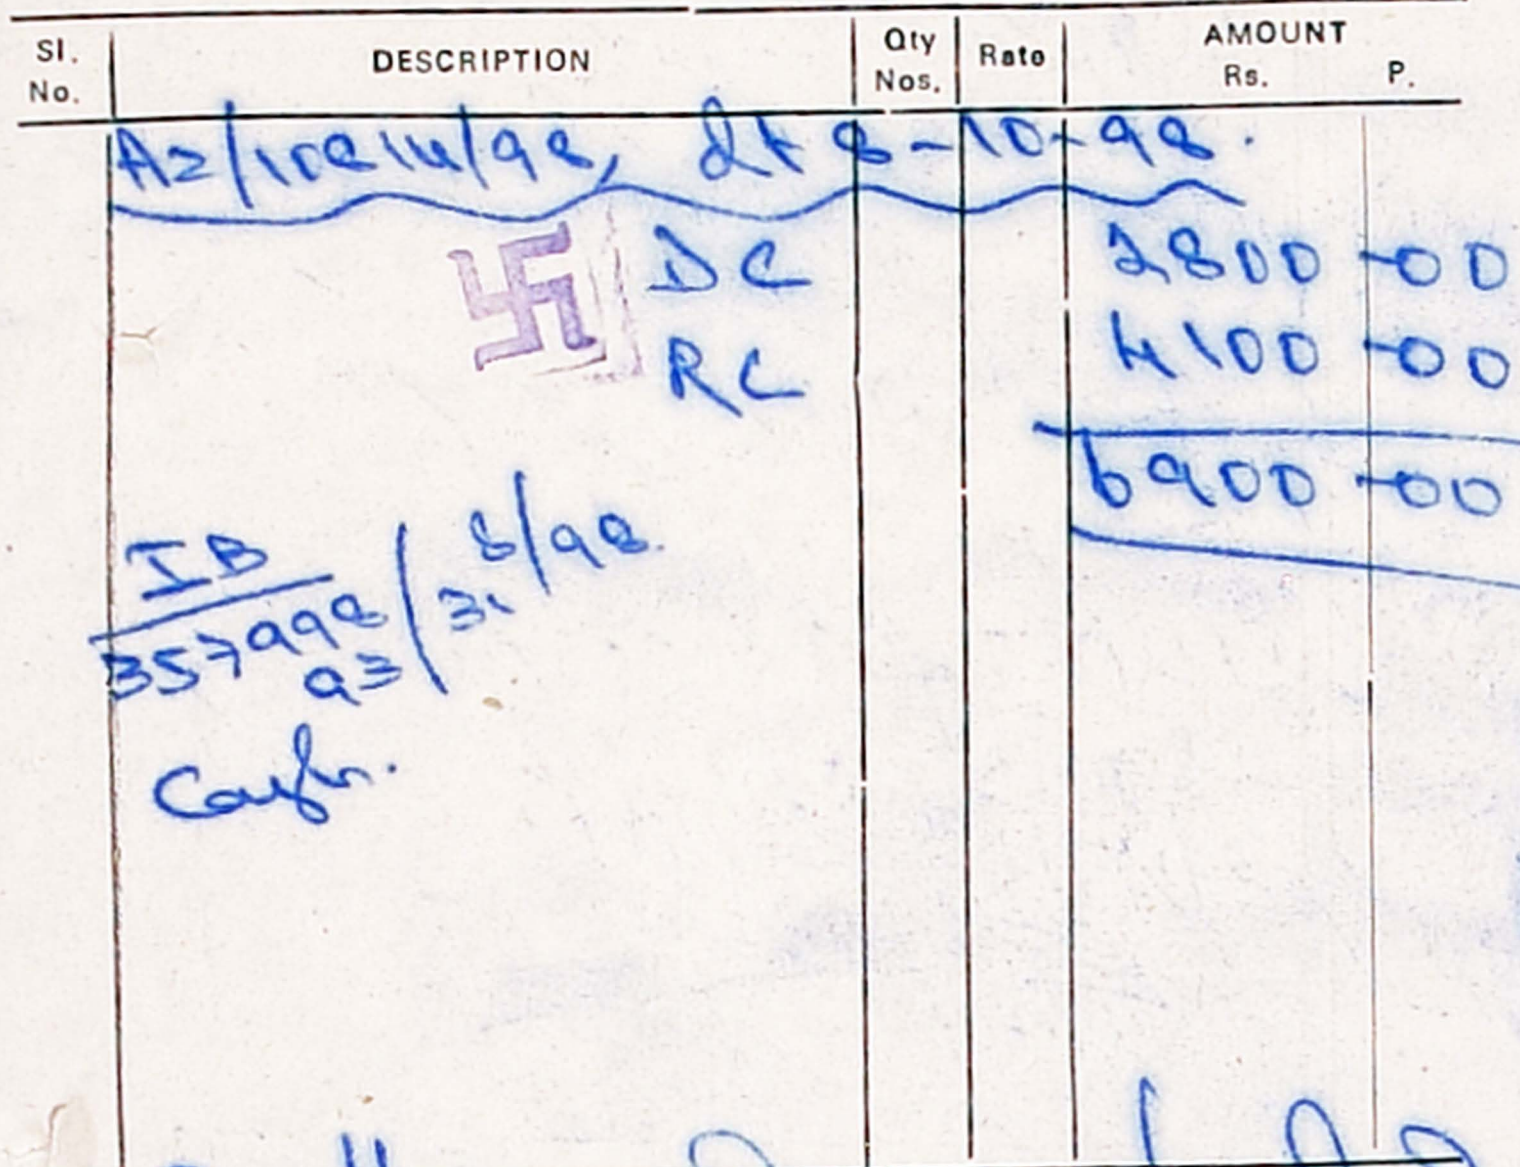 Sl. No. DESCRIPTION Qty Nos. Rate AMOUNT Rs. P.
A2/10814/98, dt 8-10-98.
DC 2800-00
RC 4100-00
6900-00
IB
357998 / 31 8/98.
93
Cash.